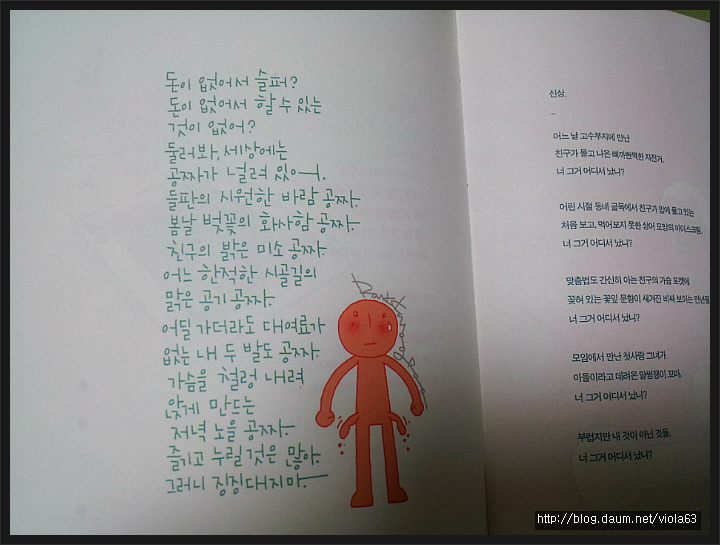 돈이 없어서 슬퍼?
돈이 없어서 할 수 있는
것이 없어?
둘러봐, 세상에는
공짜가 널려 있어.
들판의 시원한 바람 공짜.
봄날 벚꽃의 화사함 공짜.
친구의 밝은 미소 공짜.
어느 한적한 시골길의
맑은 공기 공짜.
어딜 가더라도 대여료가
없는 내 두 발도 공짜.
가슴을 철렁 내려
앉게 만드는
저녁 노을 공짜.
즐기고 누릴 것은 많아.
그러니 징징대지마.
신상.
어느 날 고수부지에 만난
친구가 몰고 나온 삐까뻔쩍한 자전거.
너 그거 어디서 났니?
어린 시절 동네 골목에서 친구가 입에 물고 있는
처음 보고, 먹어보지 못한 상어 모양의 아이스크림.
너 그거 어디서 났니?
맞춤법도 간신히 아는 친구의 가슴 포켓에
꽂혀 있는 꽃잎 문양이 새겨진 비싸 보이는 만년필
너 그거 어디서 났니?
모임에서 만난 첫사랑 그녀가
아들이라고 데려온 말썽쟁이 꼬마.
너 그거 어디서 났니?
부럽지만 내 것이 아닌 것들.
너 그거 어디서 났니?
http://blog.daum.net/viola63